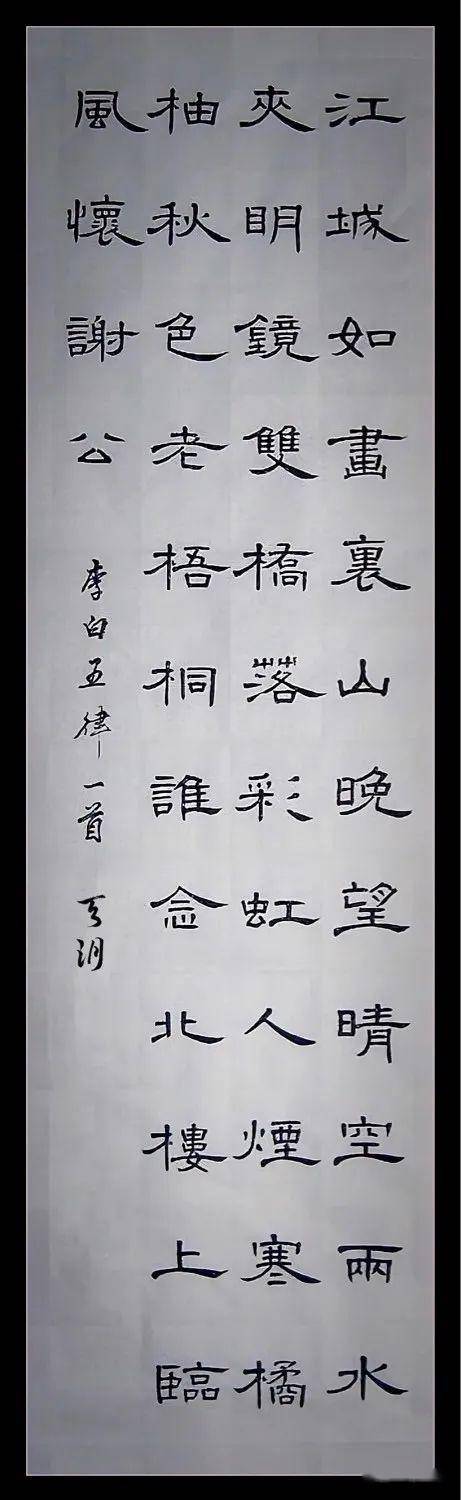 江城如畫裏山晚望晴空兩水
夾明鏡雙橋落彩虹人煙寒橘
柚秋色老梧桐誰念北樓上臨
風懷謝公
李白五律一首